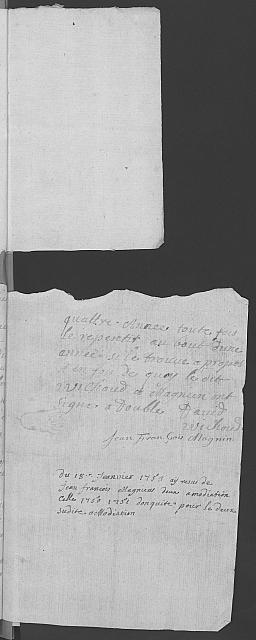 quattre Annee toute fois
le repentir au bout d'une
année si le trouve a propos
en foy de quoy le dit
Wichoud et Magnien ont
signe a Double David
Wichoud
Jean François Magnin
Des 18.e Jeanvier 1753 ay reçus de
Jean françois Magnient deux amodiation
celle 1750 1751 donquitte pour la deux
sudite amodiation